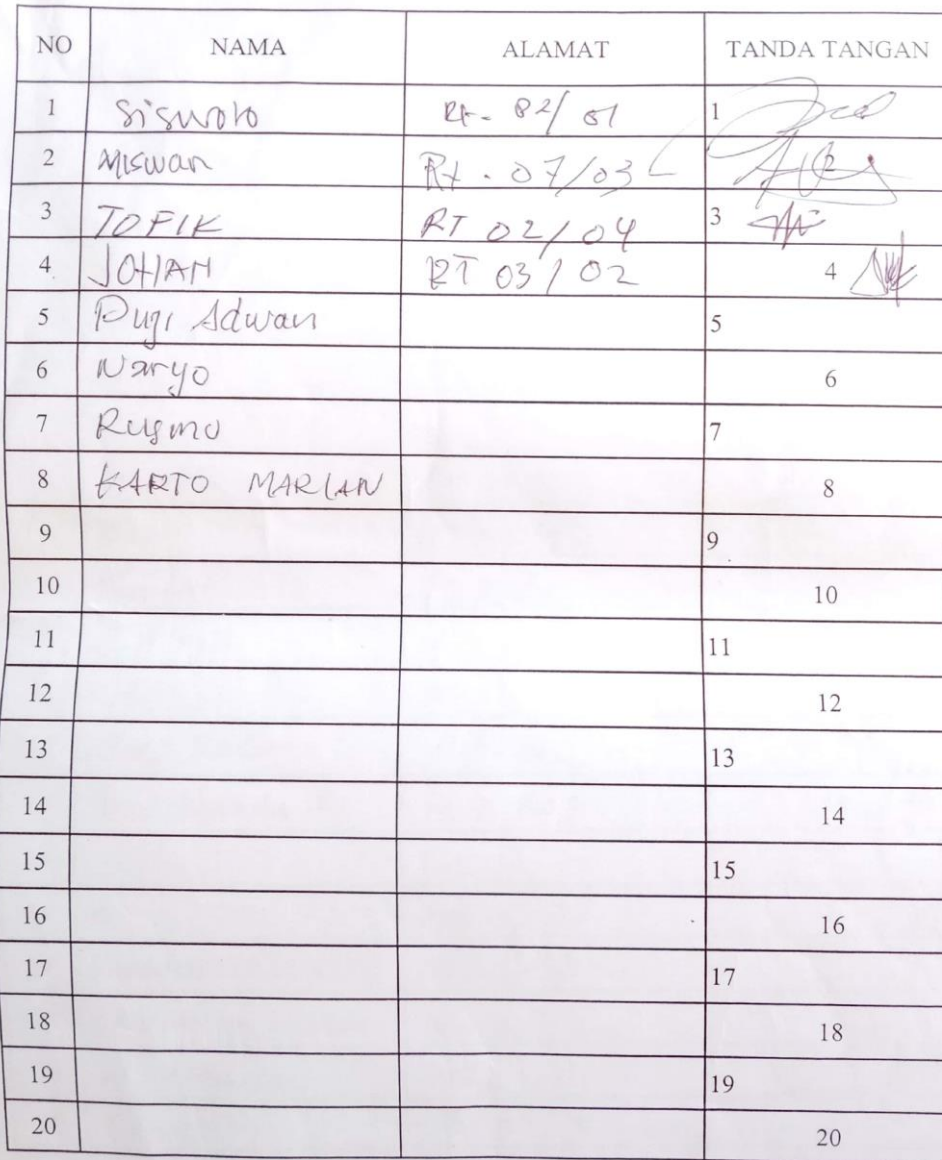 NO NAMA ALAMAT TANDA TANGAN
1 Siswoto Rt - 02/01 1
2 Miswan Rt - 07/03 2
3 TOFIK RT 02/04 3
4 JOHAN RT 03/02 4
5 Puji Adwan 5
6 Naryo 6
7 Rusmo 7
8 KARTO MARLAN 8
9 9
10 10
11 11
12 12
13 13
14 14
15 15
16 16
17 17
18 18
19 19
20 20